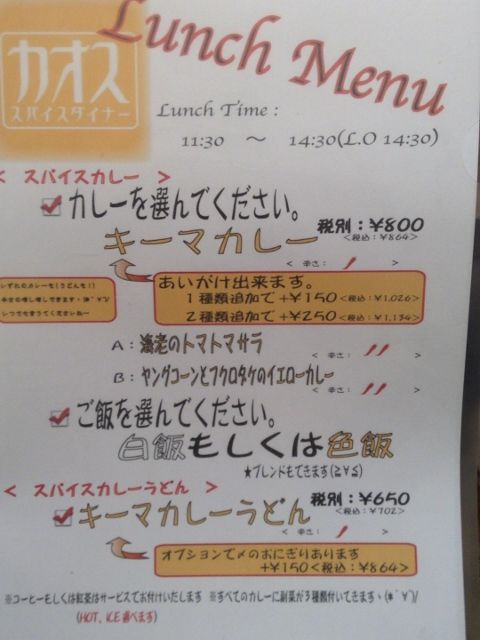 カオス
スパイスダイナー
Lunch Menu
Lunch Time :
11:30 ～ 14:30(L.O 14:30)
< スパイスカレー >
カレーを選んでください。
税別：¥800
キーマカレー
<税込：¥864>
< 辛さ：
あいがけ出来ます。
1種類追加で+¥150<税込：¥1,026>
2種類追加で+¥250<税込：¥1,134>
A：海老のトマトマサラ
< 辛さ： >
B：ヤングコーンとフクロタケのイエローカレー
< 辛さ： >
ご飯を選んでください。
白飯もしくは色飯
★ブレンドもできます(≧∀≦)
< スパイスカレーうどん >
税別：¥650
キーマカレーうどん
<税込：¥702>
< 辛さ： >
オプションで〆のおにぎりあります
+¥150<税込：¥864>
※コーヒーもしくは紅茶はサービスでお付けいたします ※すべてのカレーに副菜が3種類付いてきます
(HOT、ICE選べます)